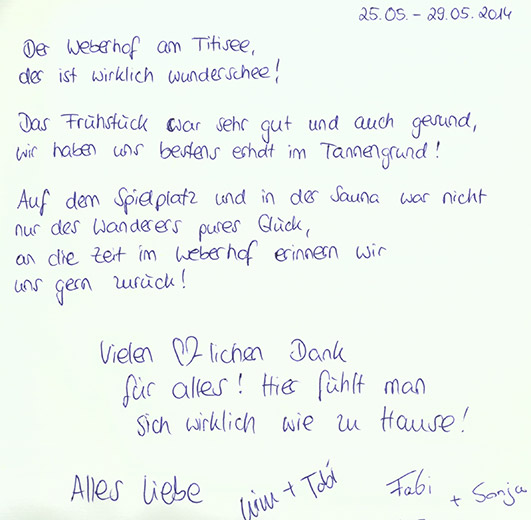 25.05. - 29.05.2014
Der Weberhof am Titisee,
der ist wirklich wunderschee!
Das Frühstück war sehr gut und auch gesund,
wir haben uns bestens erholt im Tannengrund!
Auf dem Spielplatz und in der Sauna war nicht
nur des Wanderers pures Glück,
an die Zeit im Weberhof erinnern wir
uns gern zurück!
Vielen ♡lichen Dank
für alles! Hier fühlt man
sich wirklich wie zu Hause!
Alles Liebe + Tobi Fabi + Sonja